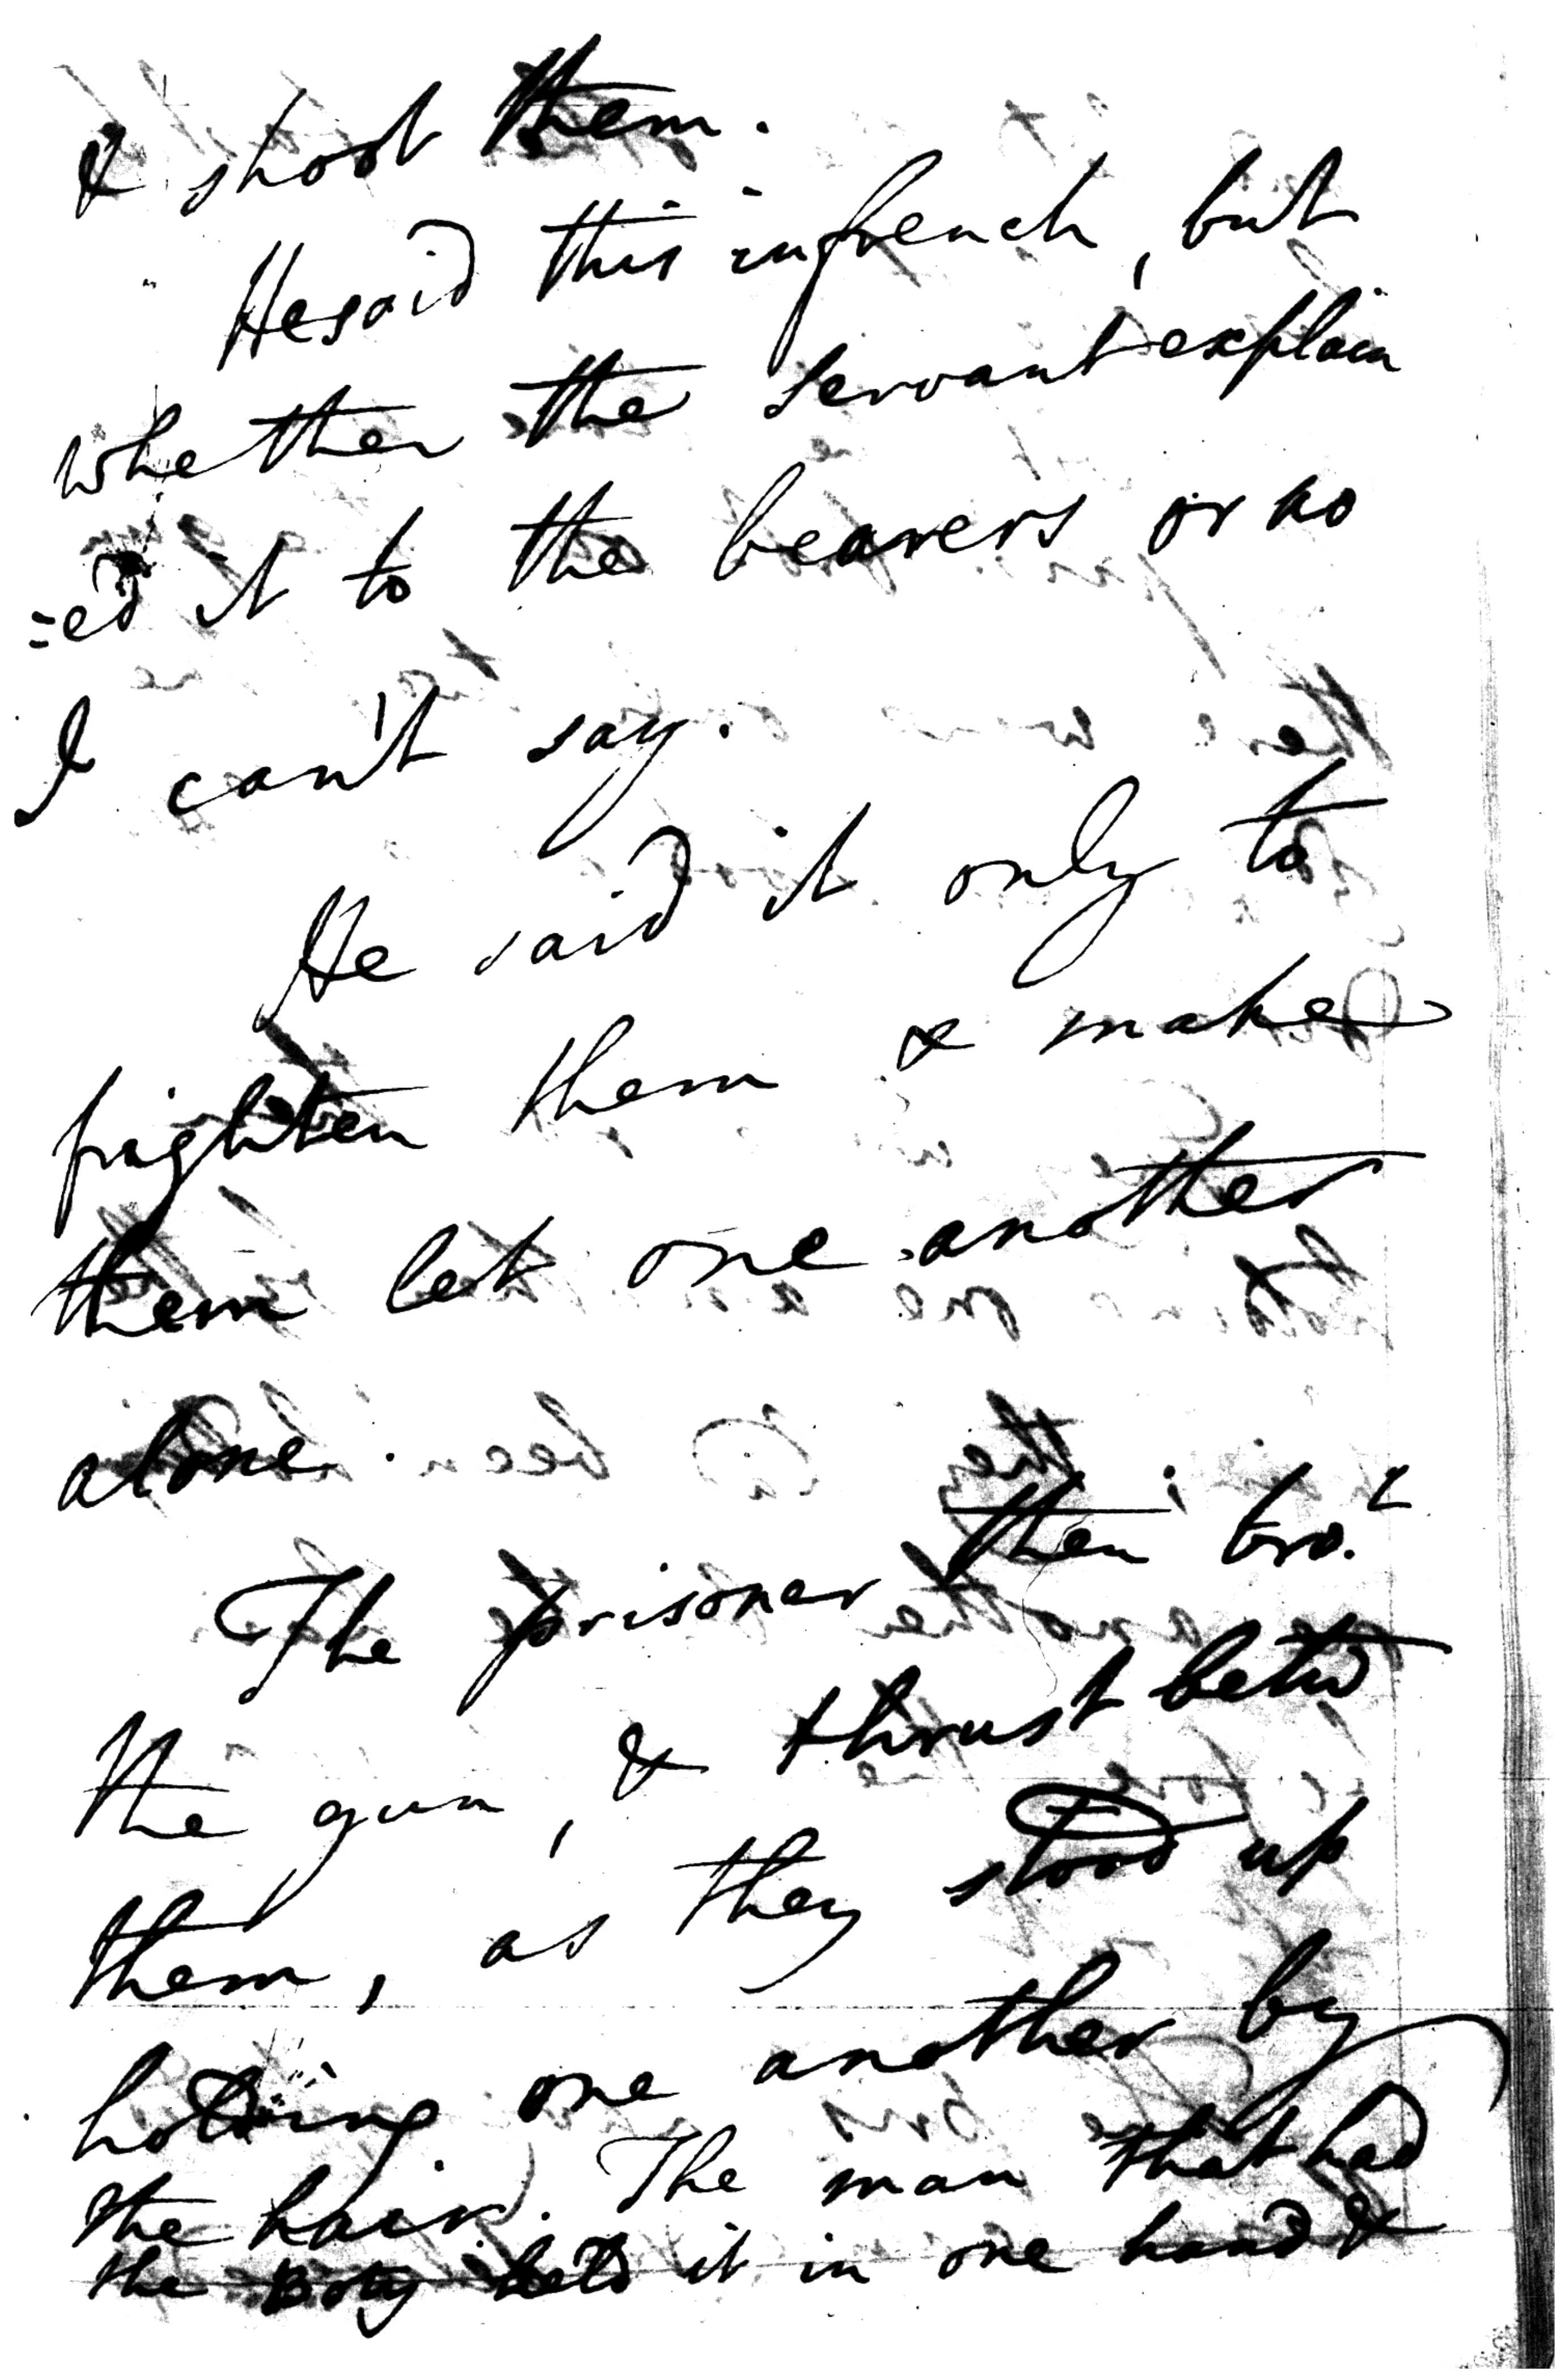 & shoot them.
He said this in french, but
whether the servant explain
=ed it to the bearers or no
I can't say.
He said it only to
frighten them & make
them let one another
alone.
The prisoner then bro.t
the gun, & thrust betw
them, as they stood up
holding one another by
the hair. The man that had
the Boty held it in one hand &